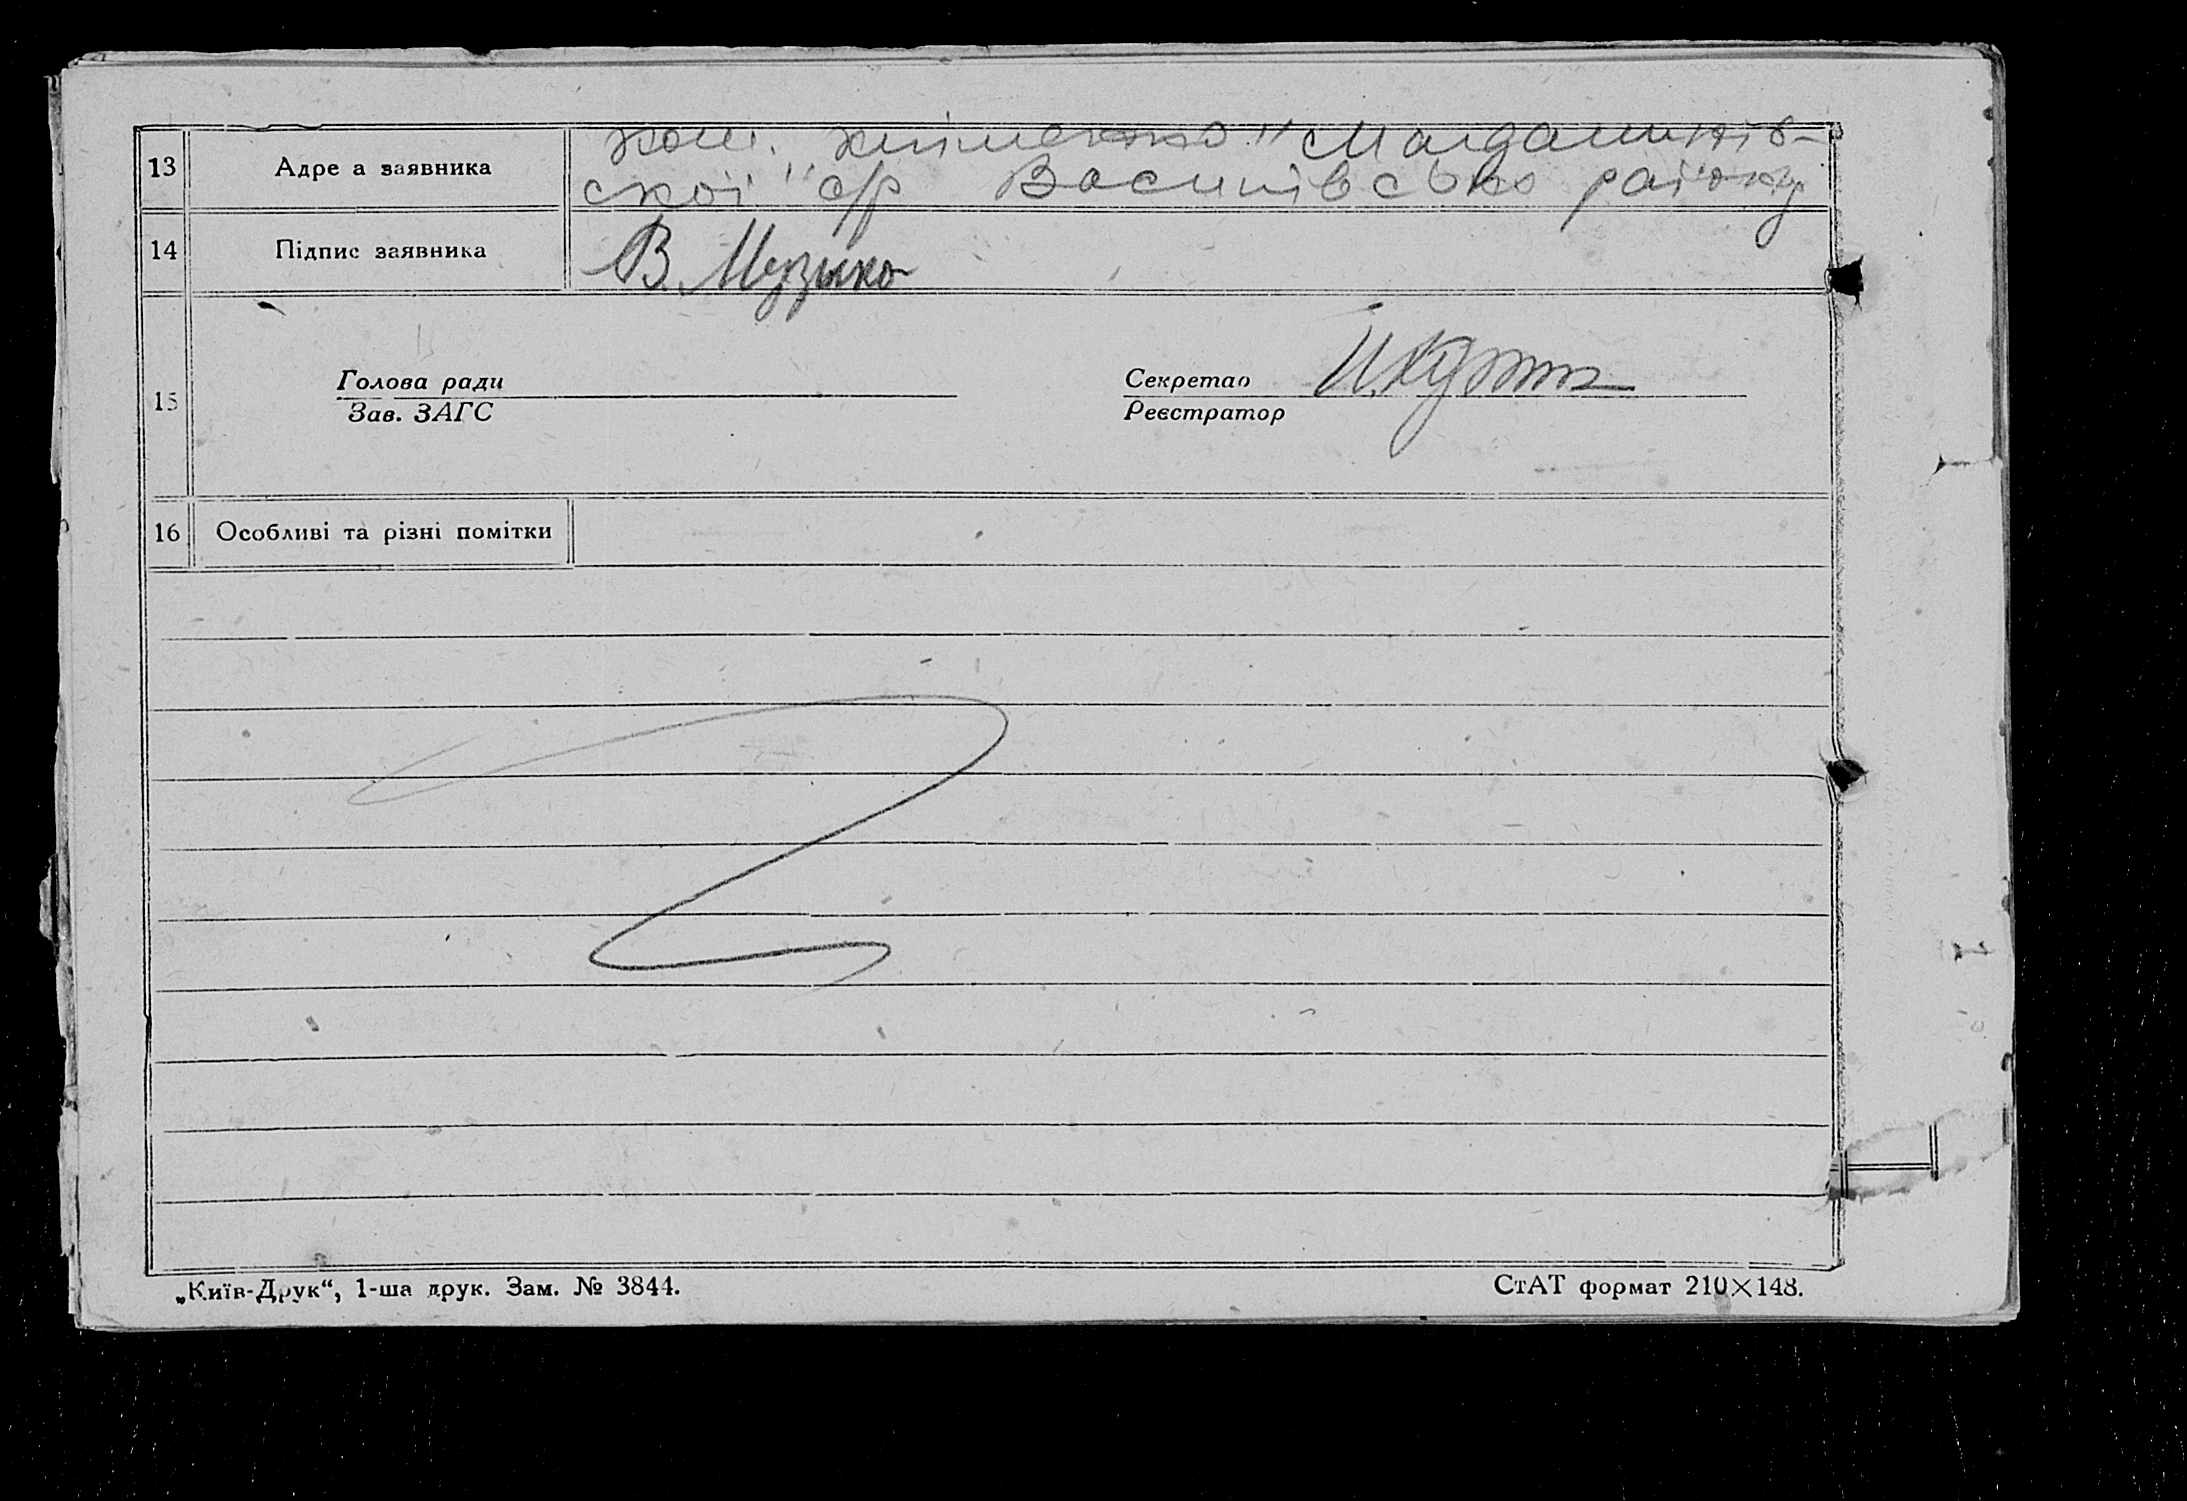 13 Адре а заявника
"Магдалинів-
ської" с/р Василівсько району
14 Підпис заявника В. Музыка
15 Голова ради Секретар
Зав. ЗАГС Реєстратор
16 Особливі та різні помітки
„Київ-Друк“, 1-ша друк. Зам. № 3844. СтАТ формат 210×148.